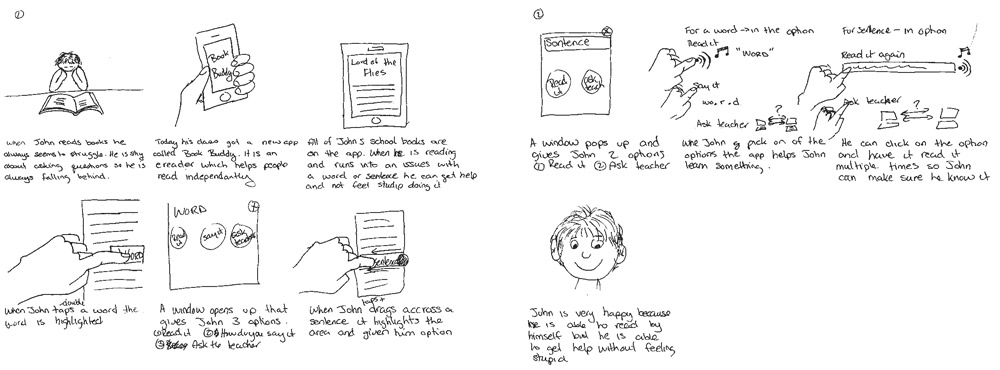 ①
Book
Buddy
Lord of the
Flies
When John reads books he
always seems to struggle. He is shy
about asking questions so he is
always falling behind.
Today his class got a new app
called Book Buddy. It is an
ereader which helps people
read independantly
All of John's school books are
on the app. When he is reading
and runs into an issues with
a word or sentence he can get help
and not feel studip doing it
WORD
WORD
Read
it
say it
ask
teacher
x
Sentence
When John double taps a word the
word is highlighted
A window opens up that
gives John 3 options.
① Read it ② How do you say it
③ Ask the teacher
When John taps + drags accross a
sentence it highlights the
area and given him option
②
x
Sentence
Read
it
Ask
teach
For a word → in the option
Read it
"WORD"
say it
wo.r.d
Ask teacher
?
For sentence - in option
Read it again
Ask teacher
?
A window pops up and
gives John 2 options
① Read it ② Ask teacher
John pick on of the
options the app helps John
learn something.
He can click on the option
and have it read it
multiple times so John
can make sure he know it
John is very happy because
he is able to read by
himself but he is able
to get help without feeling
stupid